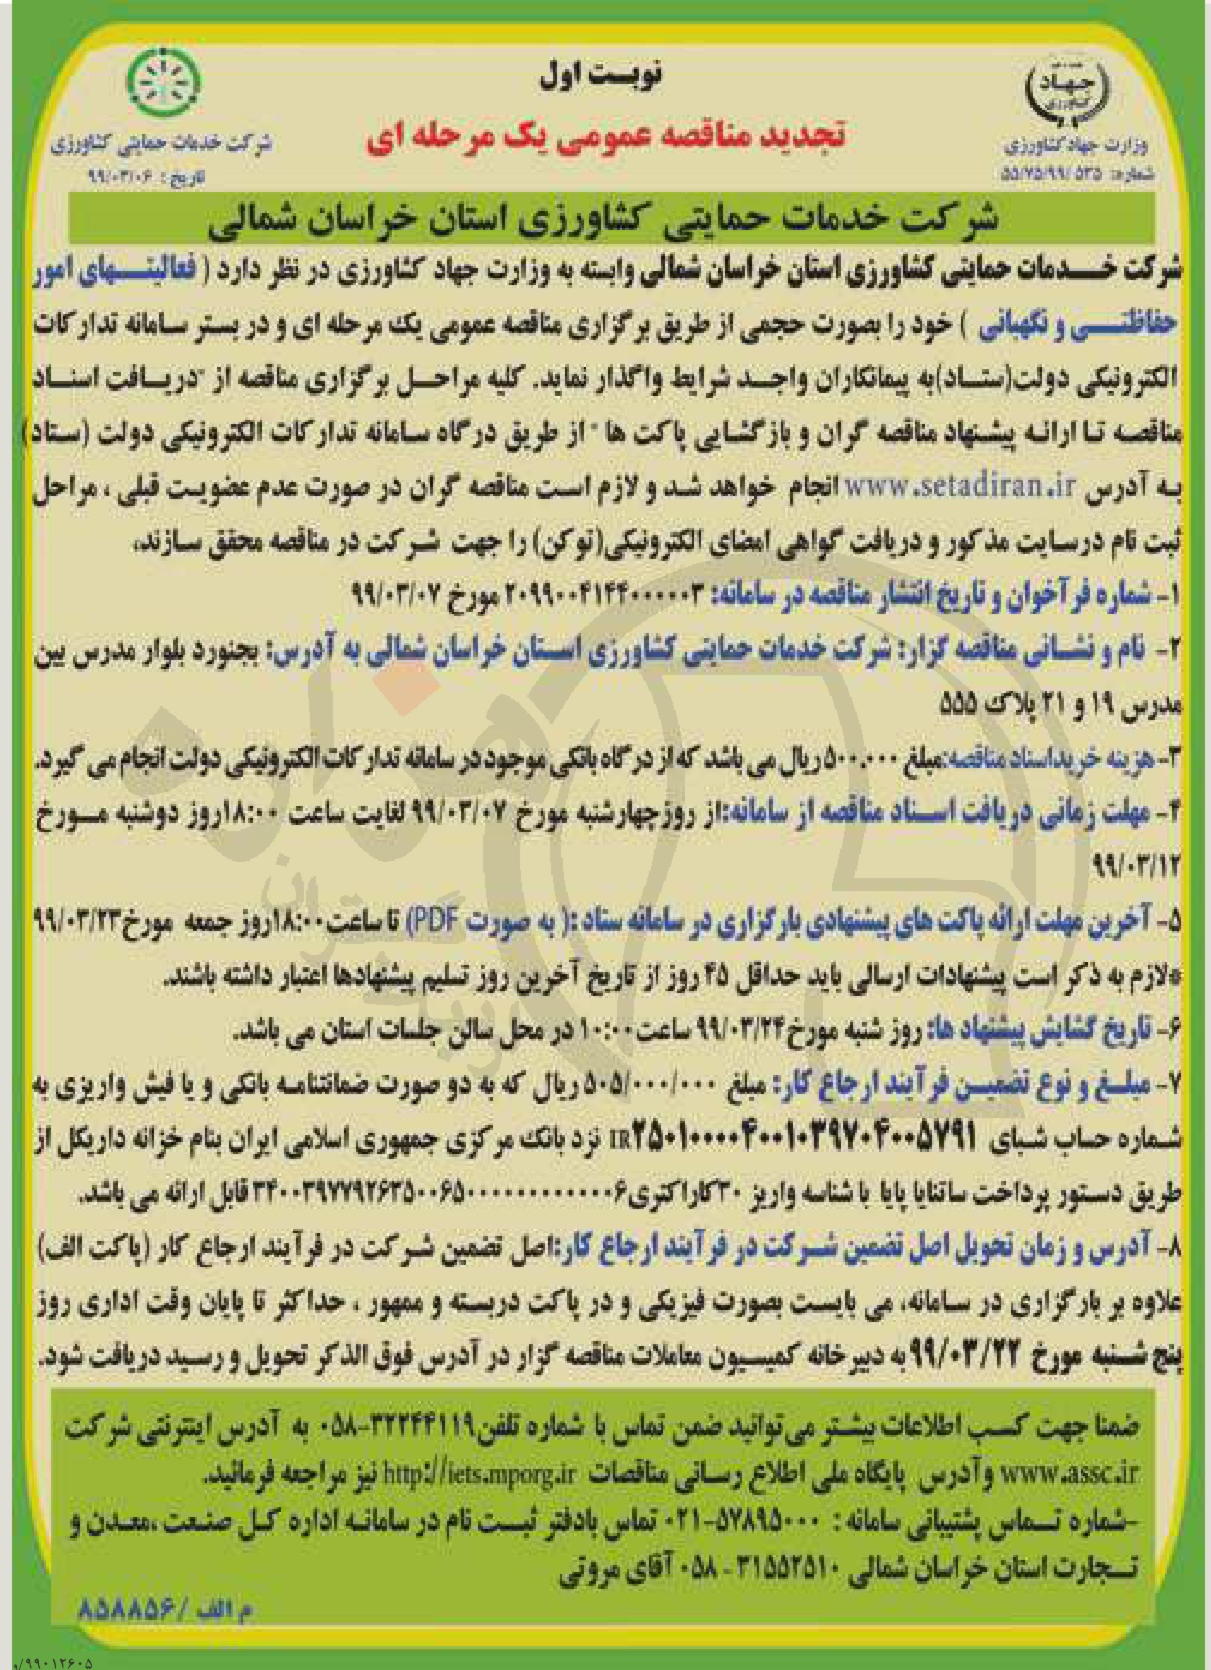 نوبت اول
تجدید مناقصه عمومی یک مرحله ای
جهاد
کشاورزی
وزارت جهاد کشاورزی
شماره: ۵۵/۷۵/۹۹/۵۳۵
شرکت خدمات حمایتی کشاورزی
تاریخ : ۹۹/۰۳/۰۶
شرکت خدمات حمایتی کشاورزی استان خراسان شمالی
شرکت خدمات حمایتی کشاورزی استان خراسان شمالی وابسته به وزارت جهاد کشاورزی در نظر دارد ( فعالیتهای امور
حفاظتی و نگهبانی ) خود را بصورت حجمی از طریق برگزاری مناقصه عمومی یک مرحله ای و در بستر سامانه تدارکات
الکترونیکی دولت(ستاد)به پیمانکاران واجد شرایط واگذار نماید. کلیه مراحل برگزاری مناقصه از "دریافت اسناد
مناقصه تا ارائه پیشنهاد مناقصه گران و بازگشایی پاکت ها" از طریق درگاه سامانه تدارکات الکترونیکی دولت (ستاد)
به آدرس www.setadiran.ir انجام خواهد شد و لازم است مناقصه گران در صورت عدم عضویت قبلی ، مراحل
ثبت نام درسایت مذکور و دریافت گواهی امضای الکترونیکی(توکن) را جهت شرکت در مناقصه محقق سازند.
۱- شماره فرآخوان و تاریخ انتشار مناقصه در سامانه: ۲۰۹۹۰۰۴۱۴۴۰۰۰۰۰۳ مورخ ۹۹/۰۳/۰۷
۲- نام و نشانی مناقصه گزار: شرکت خدمات حمایتی کشاورزی استان خراسان شمالی به آدرس: بجنورد بلوار مدرس بین
مدرس ۱۹ و ۲۱ پلاک ۵۵۵
۳- هزینه خریداسناد مناقصه:مبلغ ۵۰۰.۰۰۰ ریال می باشد که از درگاه بانکی موجود در سامانه تدارکات الکترونیکی دولت انجام می گیرد.
۴- مهلت زمانی دریافت اسناد مناقصه از سامانه:از روزچهارشنبه مورخ ۹۹/۰۳/۰۷ لغایت ساعت ۱۸:۰۰روز دوشنبه مورخ
۹۹/۰۳/۱۲
۵- آخرین مهلت ارائه پاکت های پیشنهادی بارگزاری در سامانه ستاد :( به صورت PDF) تا ساعت۱۸:۰۰روز جمعه مورخ۹۹/۰۳/۲۳
*لازم به ذکر است پیشنهادات ارسالی باید حداقل ۴۵ روز از تاریخ آخرین روز تسلیم پیشنهادها اعتبار داشته باشند.
۶- تاریخ گشایش پیشنهاد ها: روز شنبه مورخ۹۹/۰۳/۲۴ ساعت۱۰:۰۰ در محل سالن جلسات استان می باشد.
۷- مبلغ و نوع تضمین فرآیند ارجاع کار: مبلغ ۵۰۵/۰۰۰/۰۰۰ ریال که به دو صورت ضمانتنامه بانکی و یا فیش واریزی به
شماره حساب شبای IR۲۵۰۱۰۰۰۰۴۰۰۱۰۳۹۷۰۴۰۰۵۷۹۱ نزد بانک مرکزی جمهوری اسلامی ایران بنام خزانه داریکل از
طریق دستور پرداخت ساتنایا پایا با شناسه واریز ۳۰کاراکتری قابل ارائه می باشد.
۸- آدرس و زمان تحویل اصل تضمین شرکت در فرآیند ارجاع کار:اصل تضمین شرکت در فرآیند ارجاع کار (پاکت الف)
علاوه بر بارگزاری در سامانه، می بایست بصورت فیزیکی و در پاکت دربسته و ممهور ، حداکثر تا پایان وقت اداری روز
پنج شنبه مورخ ۹۹/۰۳/۲۲ به دبیرخانه کمیسیون معاملات مناقصه گزار در آدرس فوق الذکر تحویل و رسید دریافت شود.
ضمنا جهت کسب اطلاعات بیشتر می‌توانید ضمن تماس با شماره تلفن۳۲۲۴۴۱۱۹-۰۵۸ به آدرس اینترنتی شرکت
www.assc.ir وآدرس پایگاه ملی اطلاع رسانی مناقصات http://iets.mporg.ir نیز مراجعه فرمائید.
-شماره تماس پشتیبانی سامانه : ۵۷۸۹۵۰۰۰-۰۲۱ تماس بادفتر ثبت نام در سامانه اداره کل صنعت ،معدن و
تجارت استان خراسان شمالی ۳۱۵۵۲۵۱۰-۰۵۸ آقای مروتی
م الف /۸۵۸۸۵۶
۹۹۰۱۲۶۰۵/و